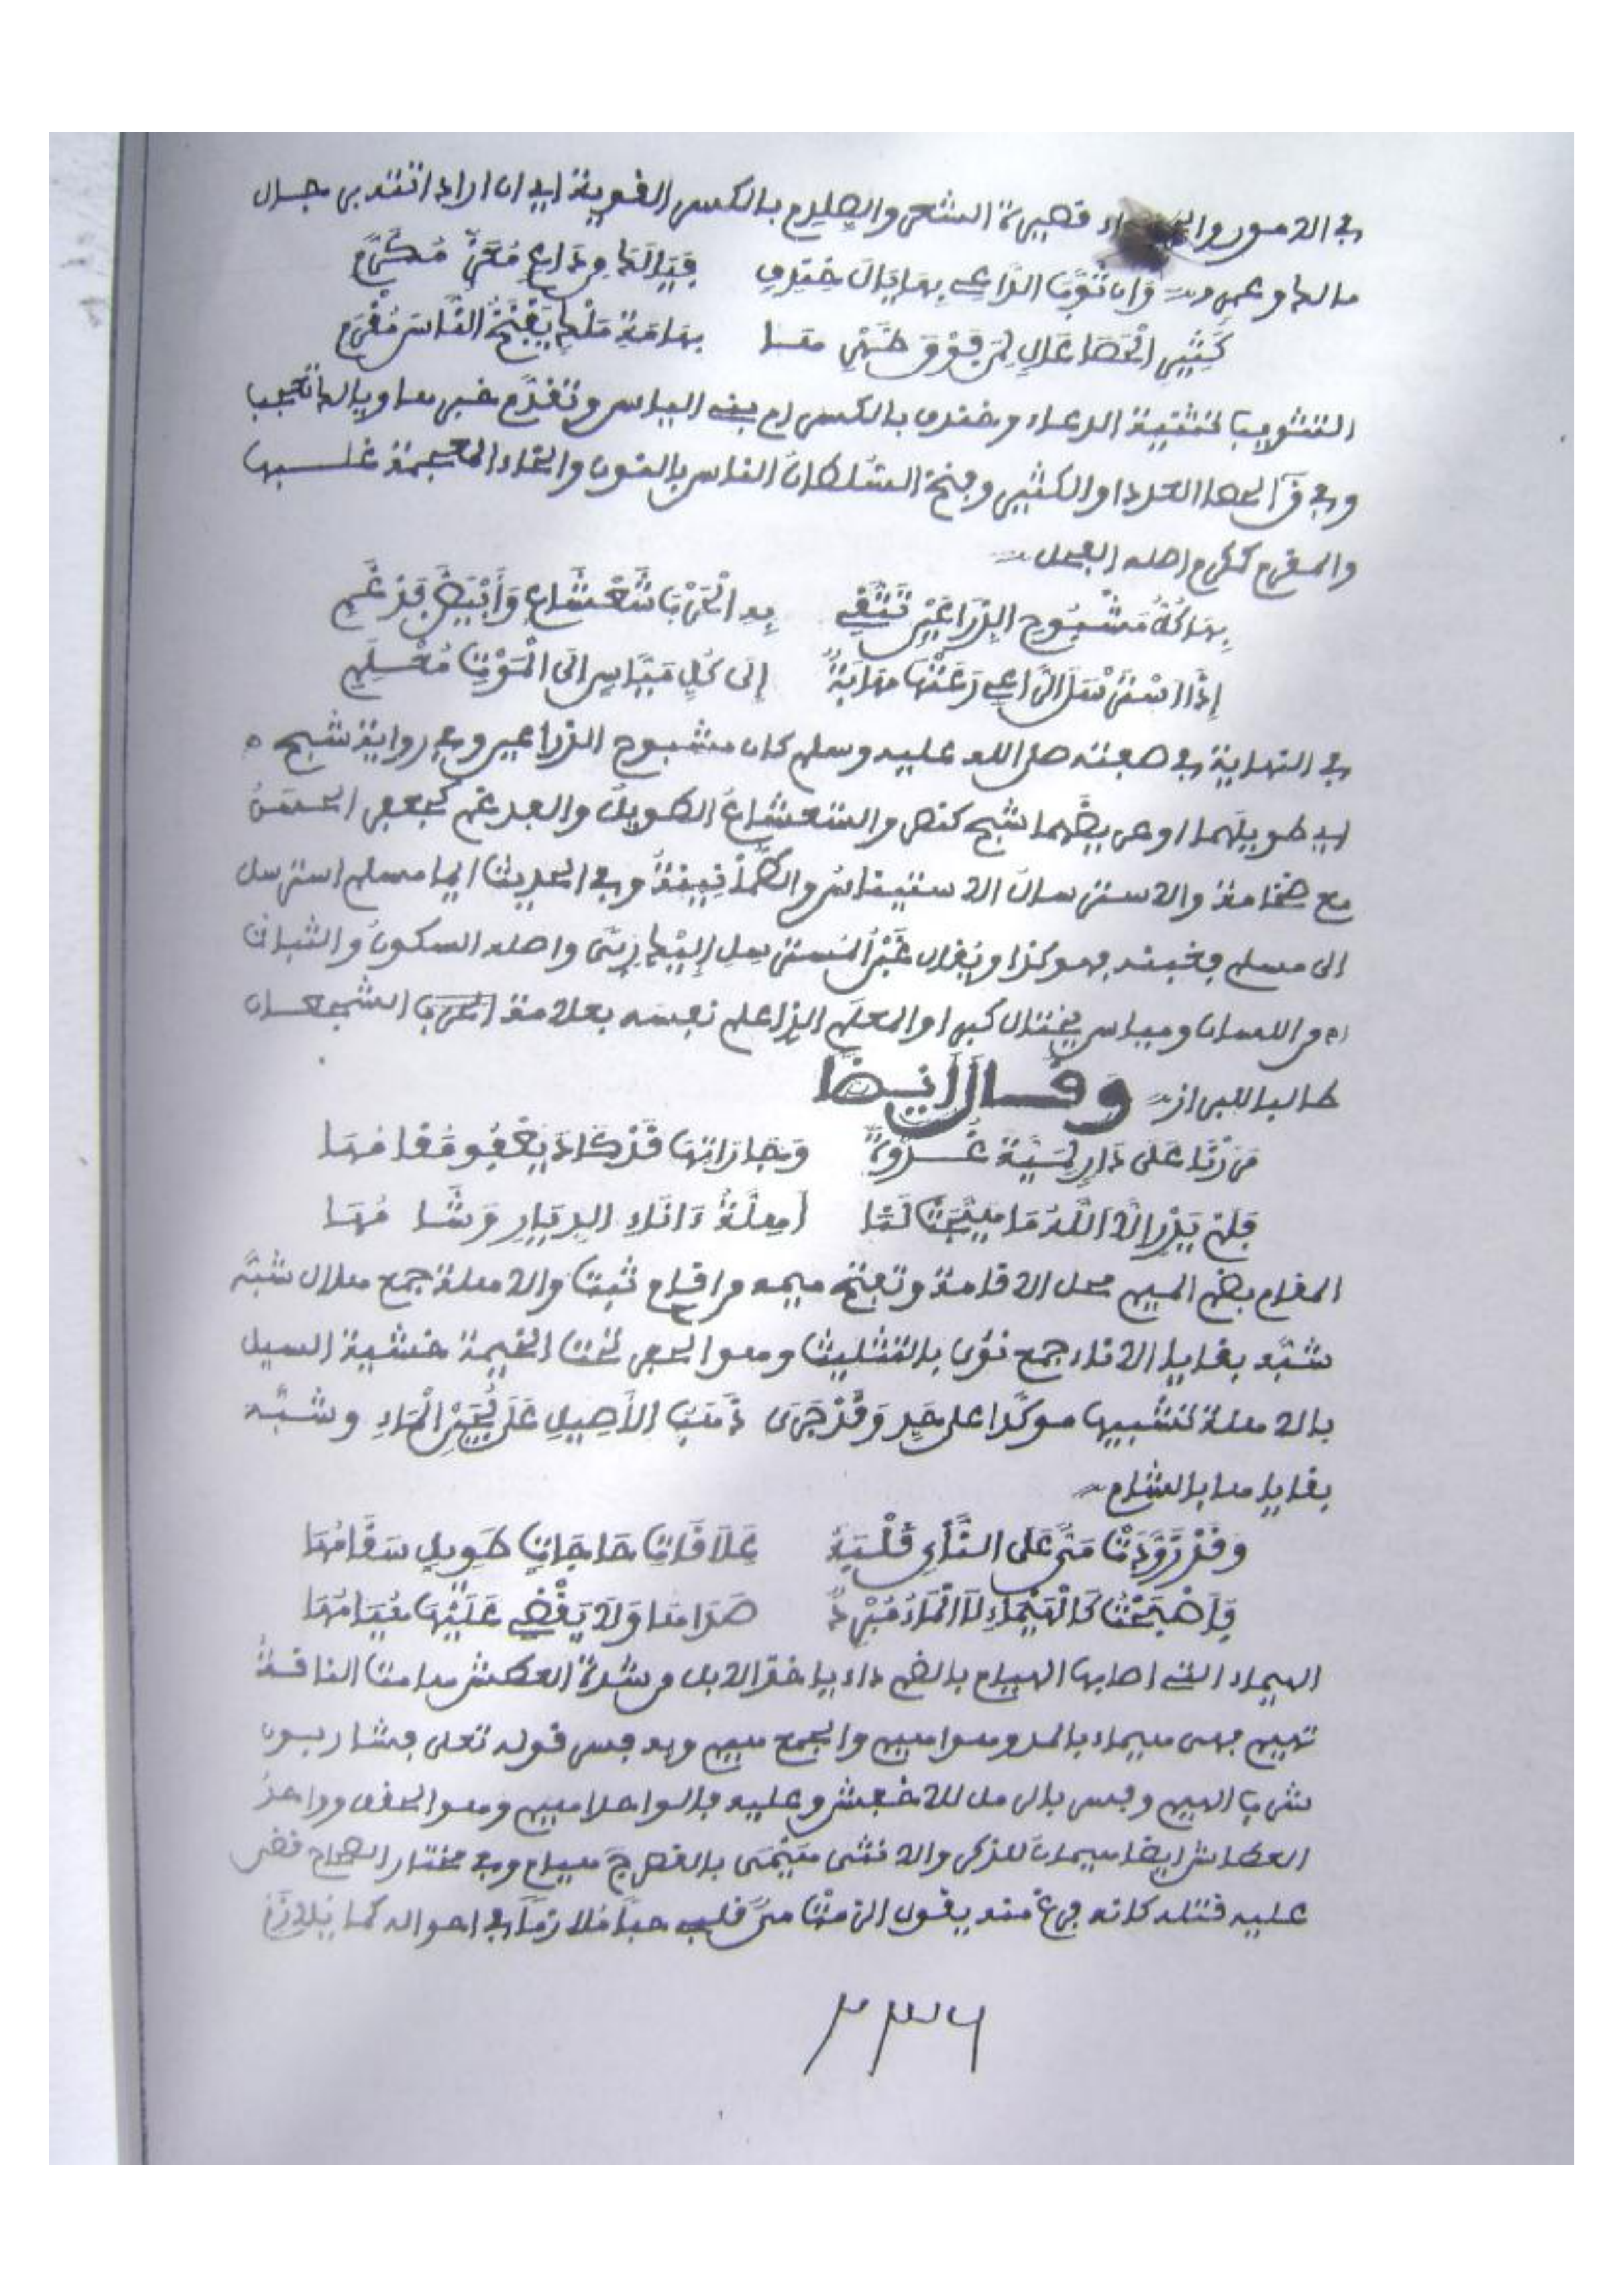 في الامور والجرداء قصيرة الشعر والصلدم بالكسر القوية اي ان اراد انتدبى جال
مالك وعمرو وَان ثَوَّبَ الدَّاعِي بِهَا يَالَ خِنْدِفٍ فَيَا لَكَ مِن دَاعٍ مُعَزٍّ مُكَرَّمِ
كَثِيرِ الْحَصَا عَالٍ لِمَن فَوْقَ ظَهْرِهَا بِهَامَةِ مَلْكٍ يَفْنَخُ النَّاسَ مُقْرَمِ
التثويب تثنية الدعاء وخندف بالكسر ام بني الياس وتقدم خبرها ويالك تعجب
وفي ق الحصا العدد او الكثير وفنخ السلطان الناس بالنون والخاء المعجمة غلبها
والمقرم كمكرم اصله الفحل
بِهَا كُلُّ مَشْبُوحِ الذِّرَاعَيْنِ تَتَّقِي بِهِ الْحَرْبَ شَعْشَاعٍ وَأَبْيَضَ فَدْغَمِ
إِذَا اسْتَرْسَلَ الرَّاعِي رَعَتْهَا مَهَابَةٌ إِلَى كُلِّ مَيَّاسٍ إِلَى الْمَوْتِ مُعْلَمِ
في النهاية في صفته صلى الله عليه وسلم كان مشبوح الذراعين وفي رواية شبح
اي طويلهما او عريضهما شبح كنصر والشعشاع الطويل والفدغم كجعفر الحسن
مع ضخامة والاسترسال الاستيناس والطمأنينة وفي الحديث ايما مسلم استرسل
الى مسلم فغبنه فهو كذا ويقال غَبْنُ المسترسل إليك رِبًى واصله السكون والثبات
من اللسان ومياس يختال كبرا والمعلم الذي اعلم نفسه بعلامة الحرب الشجعان
طالبا للبراز وقال ايضا
مَرَرْنَا عَلَى دَارٍ لِمَيَّةَ غُدْوَةً وَجَارَاتِهَا قَدْ كَادَ يَعْفُو مُقَامُهَا
فَلَمْ يَدْرِ إِلَّا اللَّهُ مَا هَيَّجَتْ لَنَا أَهِلَّةُ ءَانَاءِ الدِّيَارِ وَشَامُهَا
المقام بضم الميم محل الاقامة وتفتح ميمه من اقام ثبت والاهلة جمع هلال شبه
شبه بقايا الاناء جمع نؤى بالتثليث وهو الحفر تحت الخيمة خشية السيل
بالاهلة تشبيها موكدا على حد وَقَدْ جَرَى ذَهَبُ الأَصِيلِ عَلَى لُجَيْنِ الْمَاءِ وشبه
بقاياها بالشام
وَقَدْ زَوَّدَتْ مَيٌّ عَلَى النَّأْيِ قَلْبَهُ عَلَاقَاتِ حَاجَاتٍ طَوِيلٍ سَقَامُهَا
فَأَصْبَحْتُ كَالْهَيْمَاءِ لَا الْمَاءُ مُبْرِدٌ صَدَاهَا وَلَا يَقْضِي عَلَيْهَا هُيَامُهَا
الهيماء التي اصابها الهيام بالضم داء ياخذ الابل من شدة العطش هامت الناقة
تهيم فهى هيماء بالمد وهو اهيم والجمع هيم وبه فسر قوله تعلى فشاربون
شرب الهيم وفسر بالرمل للاخفش وعليه فالواحد اهيم وهو الحق وواحد
العطاش ايضا هيمان للذكر والانثى هَيْمَى بالقصر ج هيام وفي مختار الصحاح قضى
عليه قتله كانه فرغ منه يقول الزمت ميّ قلبي حبا ملازما في احواله كما يلازم
٢٣٦